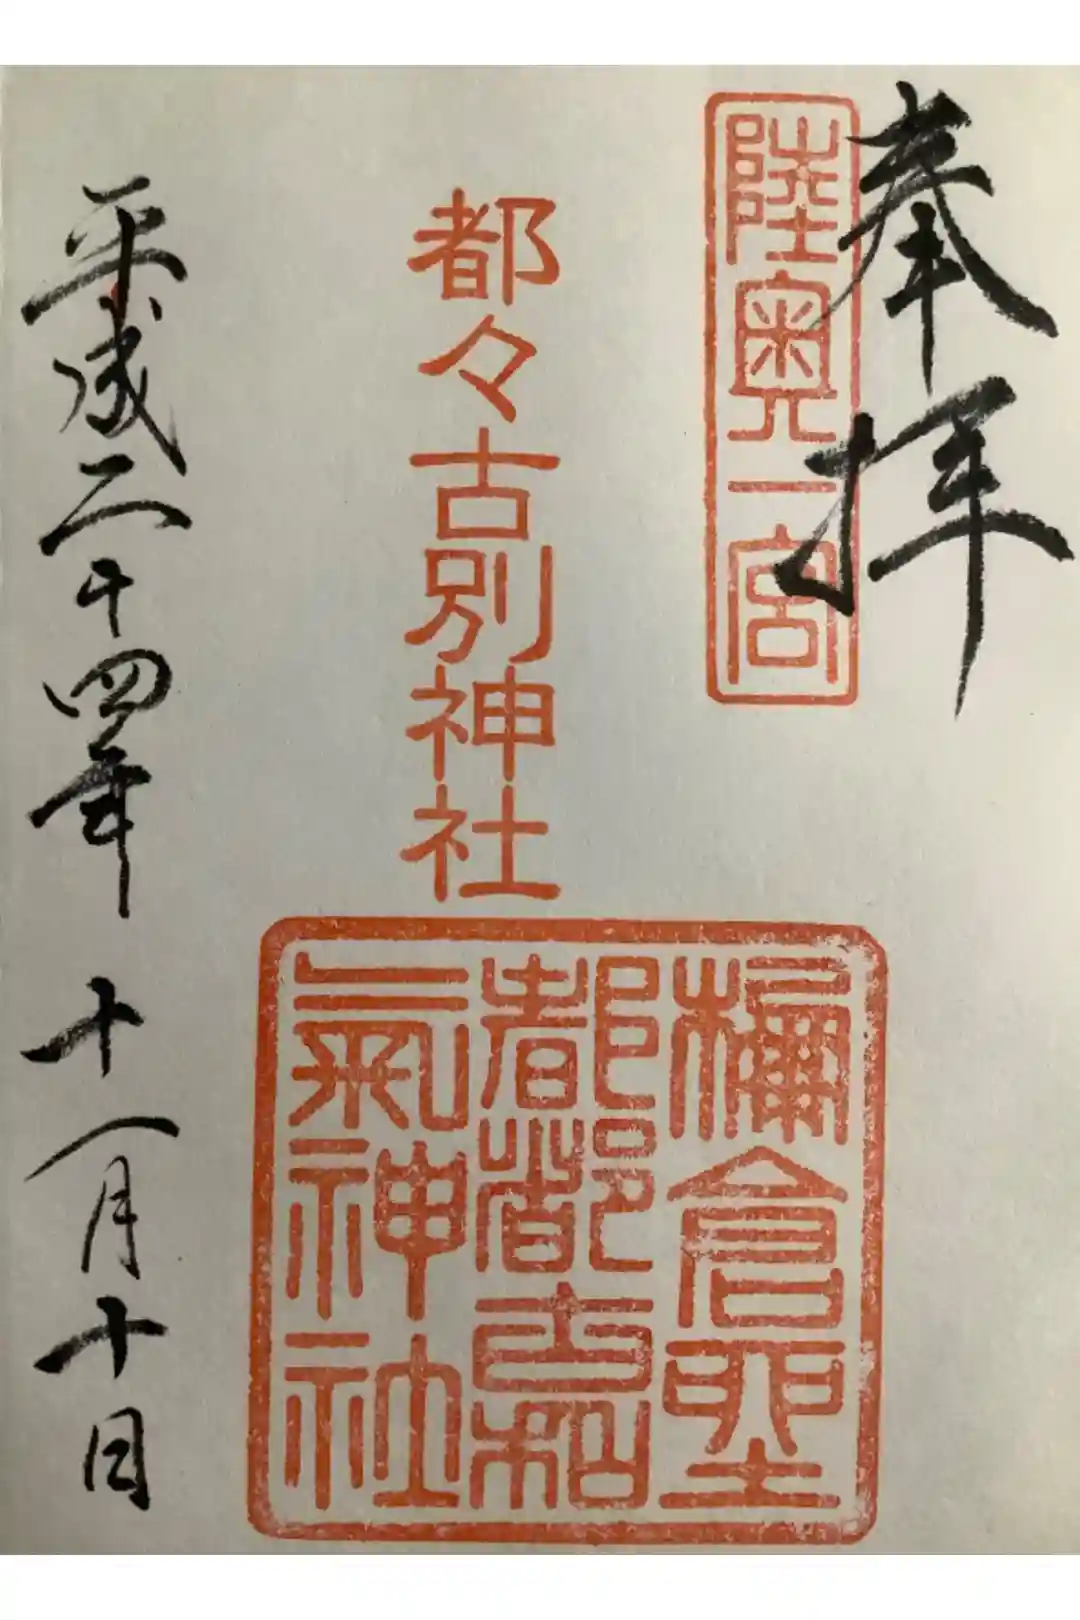 奉拝
陸奥一宮
都々古別神社
檷倉
都都古和
氣神社
平成二十四年 十一月十日